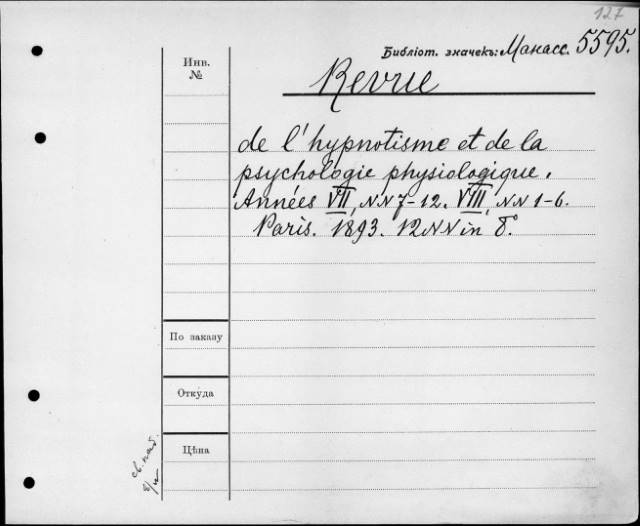 127
Библіот. значекъ: Манасс. 5595.
Инв.
№
Revue
de l'hypnotisme et de la
psychologie physiologique.
Années VII, NN 7-12. VIII, NN 1-6.
Paris. 1893. 12 NN in 8°
По заказу
Откуда
Цѣна